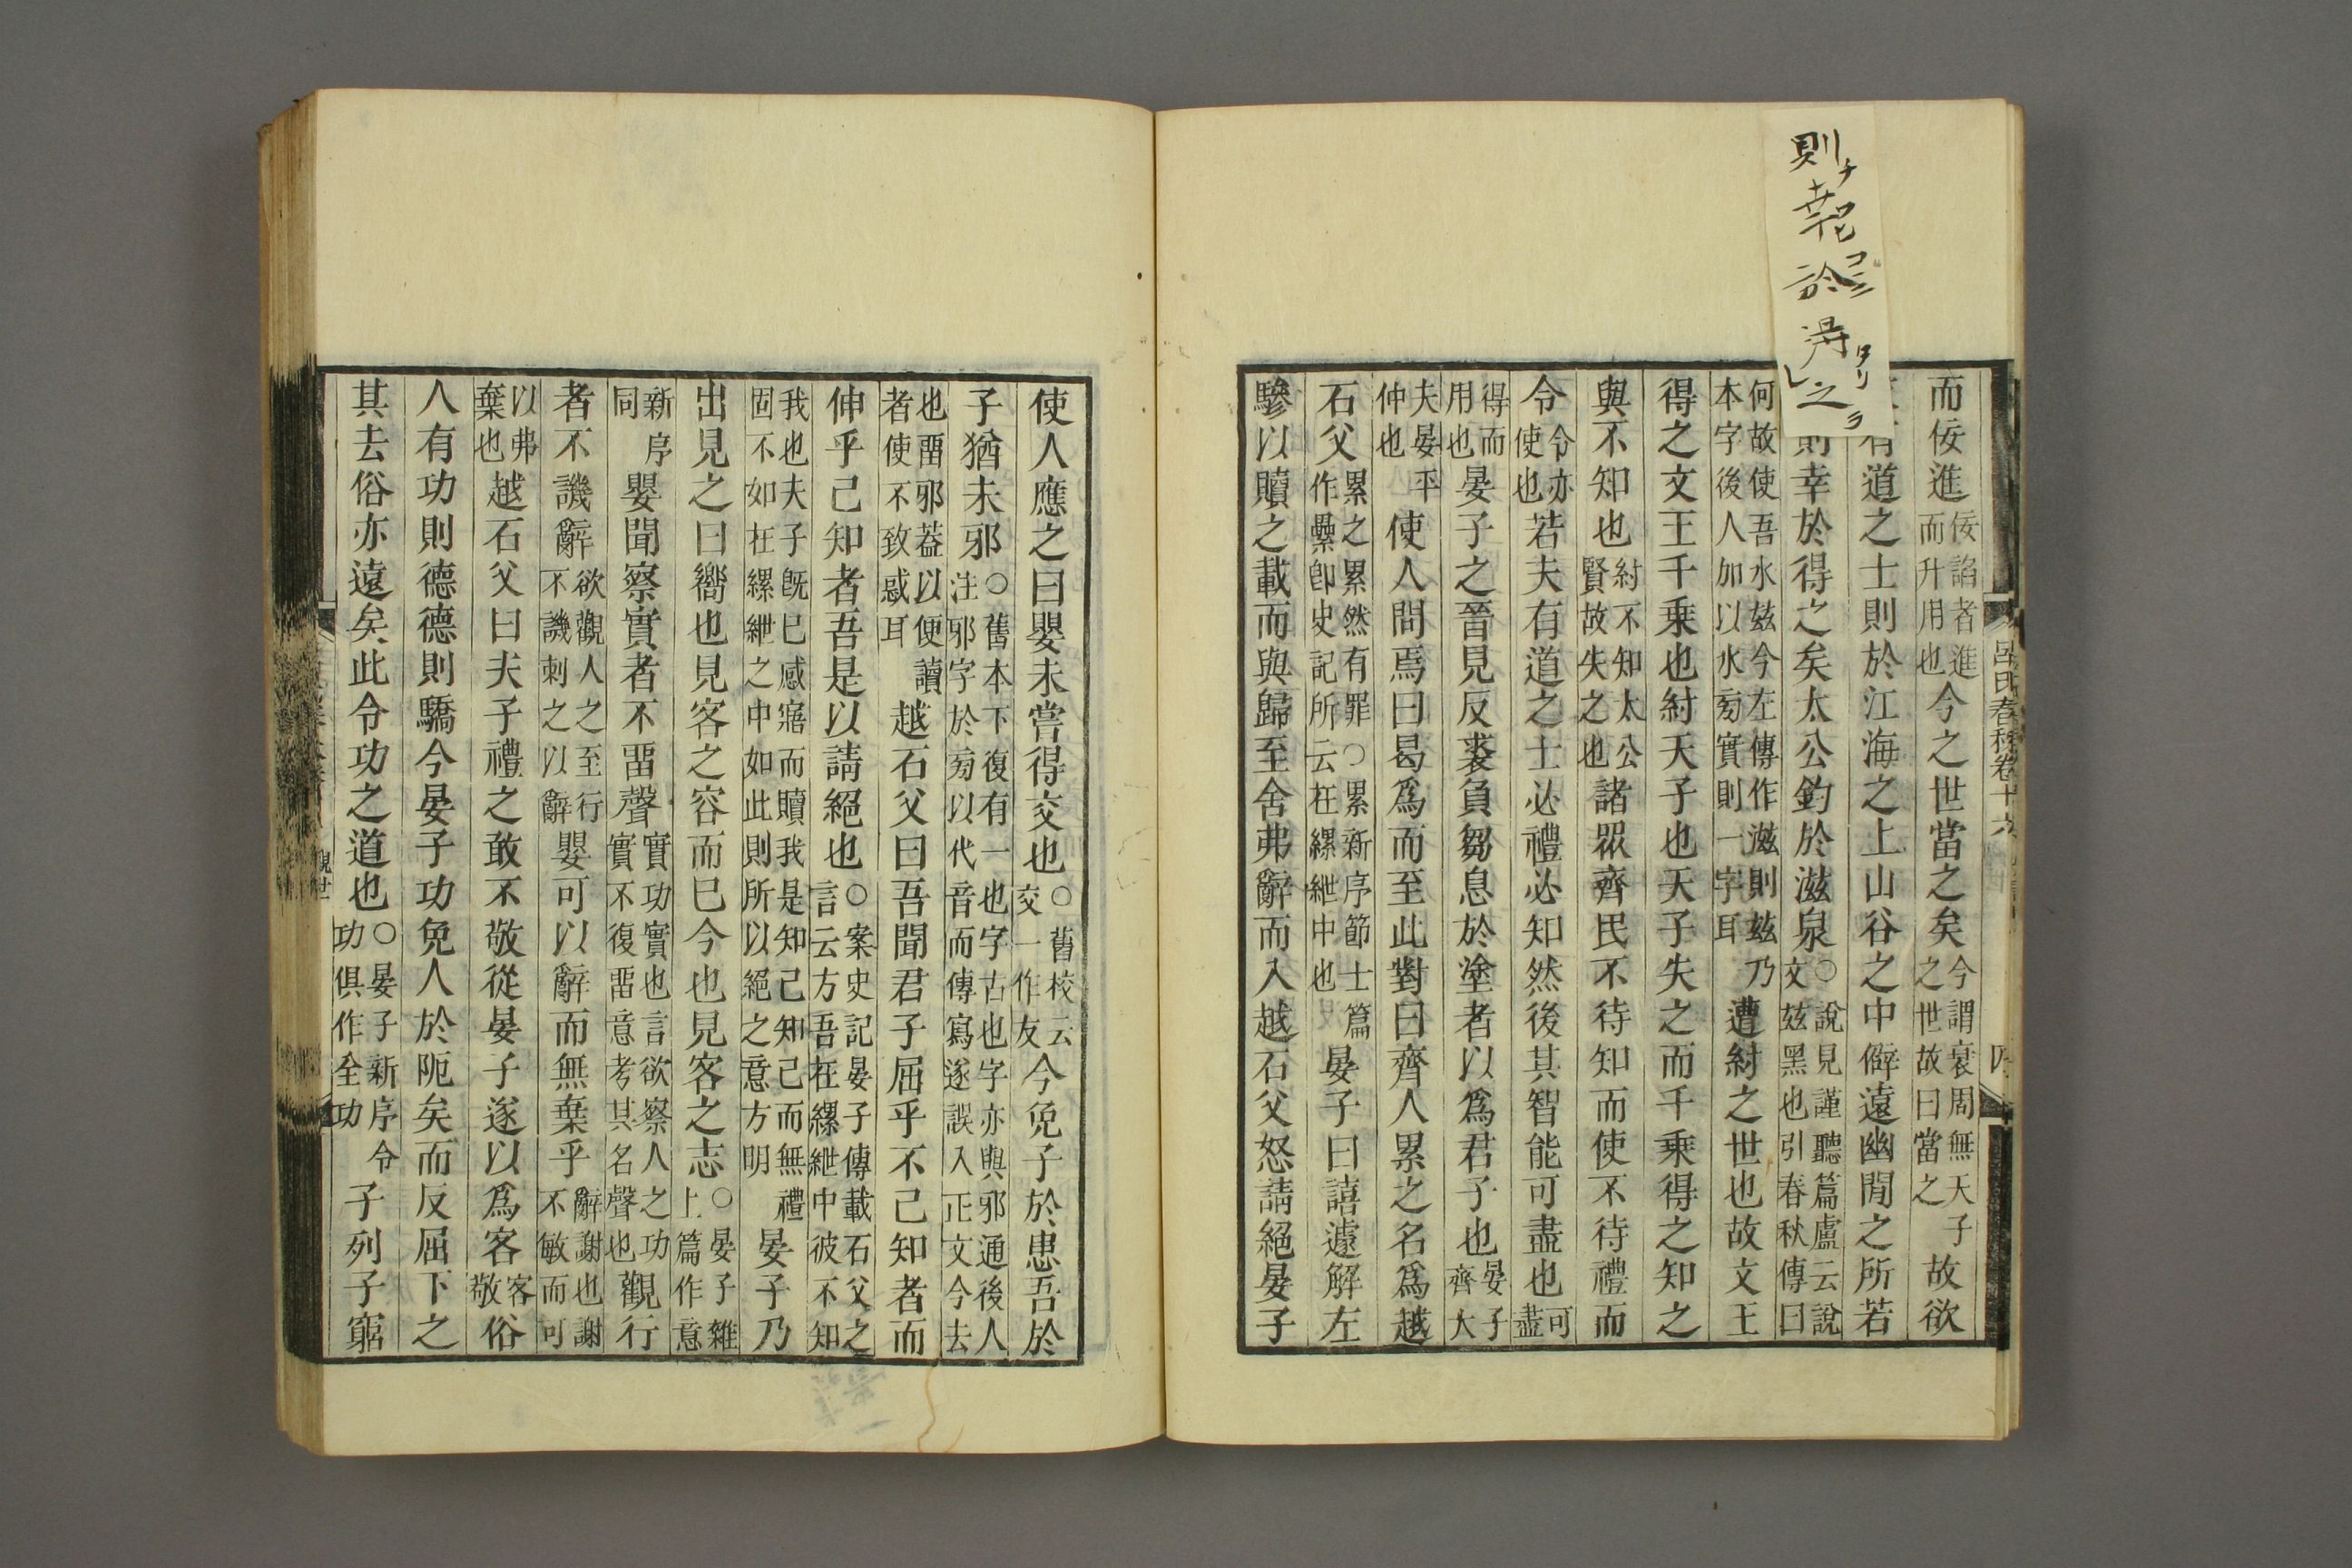 則チ幸ヒ於コニ得タリ之ヲレ
呂氏春秋卷十六
四
而佞進佞諂者進而升用也今之世當之矣今謂衰周無天子之世故曰當之故欲
有道之士則於江海之上山谷之中僻遠幽閒之所若
則幸於得之矣太公釣於滋泉○說見謹聽篇盧云說文玆黑也引春秋傳曰
何故使吾水玆今左傳作滋則玆乃本字後人加以水㫄實則一字耳遭紂之世也故文王
得之文王千乘也紂天子也天子失之而千乘得之知之
與不知也紂不知太公賢故失之也諸眾齊民不待知而使不待禮而
令令亦使也若夫有道之士必禮必知然後其智能可盡也可盡
得而用也晏子之晉見反裘負芻息於塗者以爲君子也晏子齊大
夫晏平仲也使人問焉曰曷爲而至此對曰齊人累之名爲越
石父累之累然有罪○累新序節士篇作纍卽史記所云在縲紲中也晏子曰譆遽解左
驂以贖之載而與歸至舍弗辭而入越石父怒請絕晏子
使人應之曰嬰未嘗得交也○舊校云交一作友今免子於患吾於
子猶未邪○舊本下復有一也字古也字亦與邪通後人注邪字於㫄以代音而傳寫遂誤入正文今去
也畱邪葢以便讀者使不致惑耳越石父曰吾聞君子屈乎不己知者而
伸乎己知者吾是以請絕也○案史記晏子傳載石父之言云方吾在縲紲中彼不知
我也夫子旣已感寤而贖我是知己知己而無禮固不如在縲紲之中如此則所以絕之意方明晏子乃
出見之曰嚮也見客之容而已今也見客之志○晏子雜上篇作意
新序同嬰聞察實者不畱聲實功實也言欲察人之功實不復畱意考其名聲也觀行
者不譏辭欲觀人之至行不譏刺之以辭嬰可以辭而無棄乎辭謝也謝不敏而可
以弗棄也越石父曰夫子禮之敢不敬從晏子遂以爲客客敬俗
人有功則德德則驕今晏子功免人於阨矣而反屈下之
其去俗亦遠矣此令功之道也○晏子新序令功俱作全功子列子窮
觀世